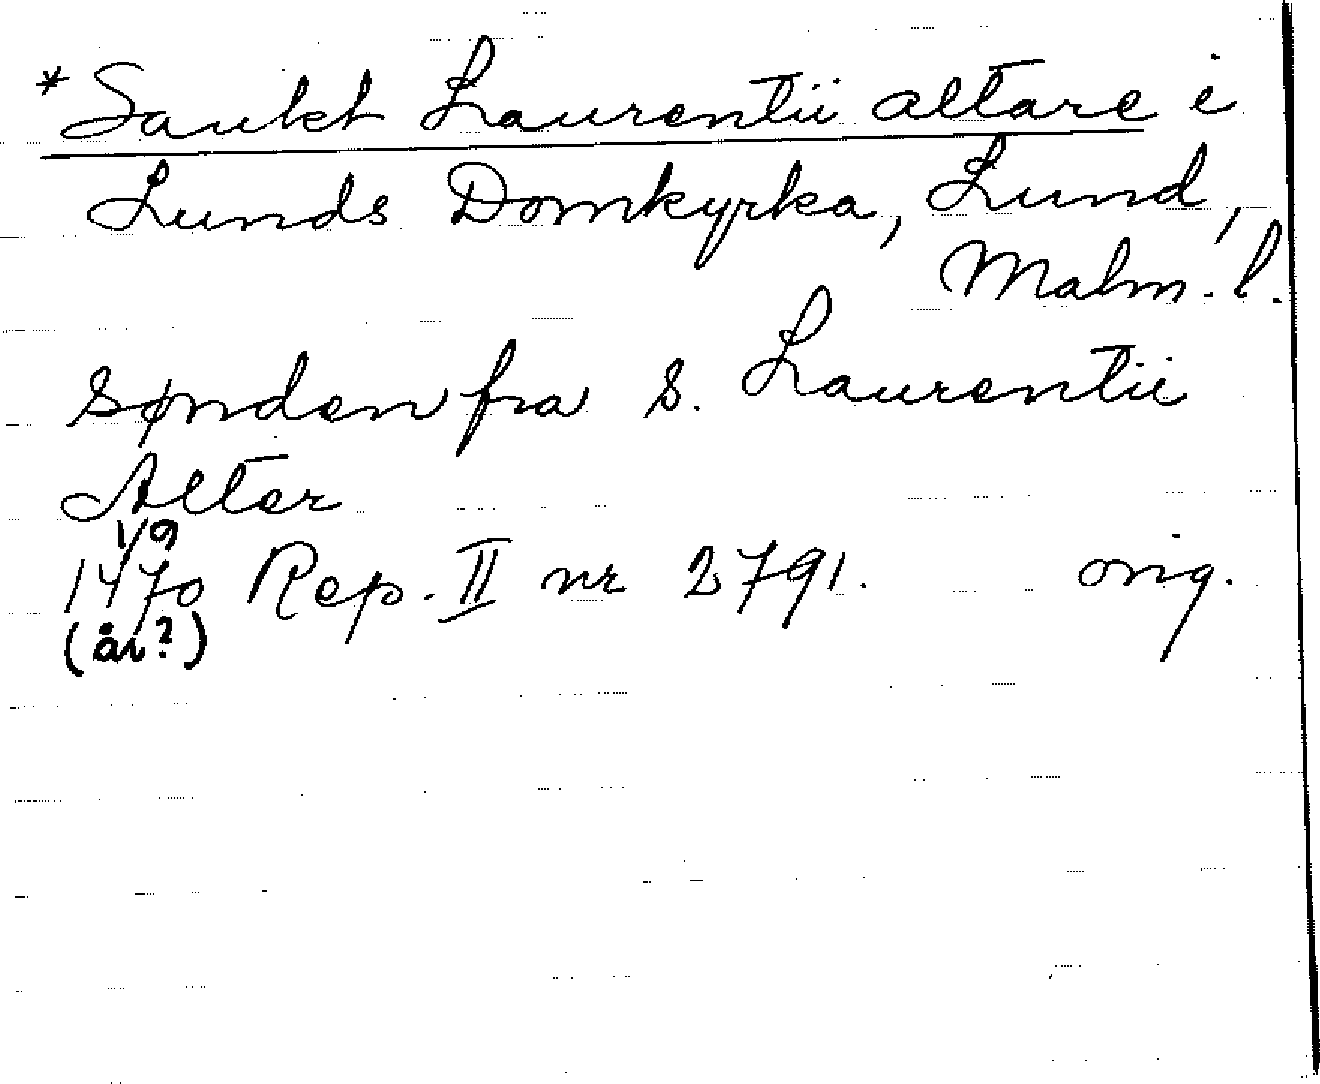 *Sankt Laurentii altare i
Lunds Domkyrka, Lund,
Malm. l.
sønden fra S. Laurentii
Alter
1/9
1470 Rep. II nr 2791. orig.
(år?)